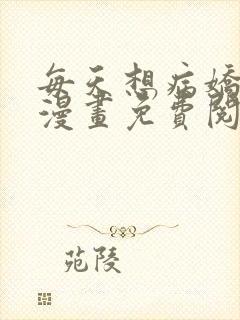 每天想病嬌
漫畫免費閱
苑陵